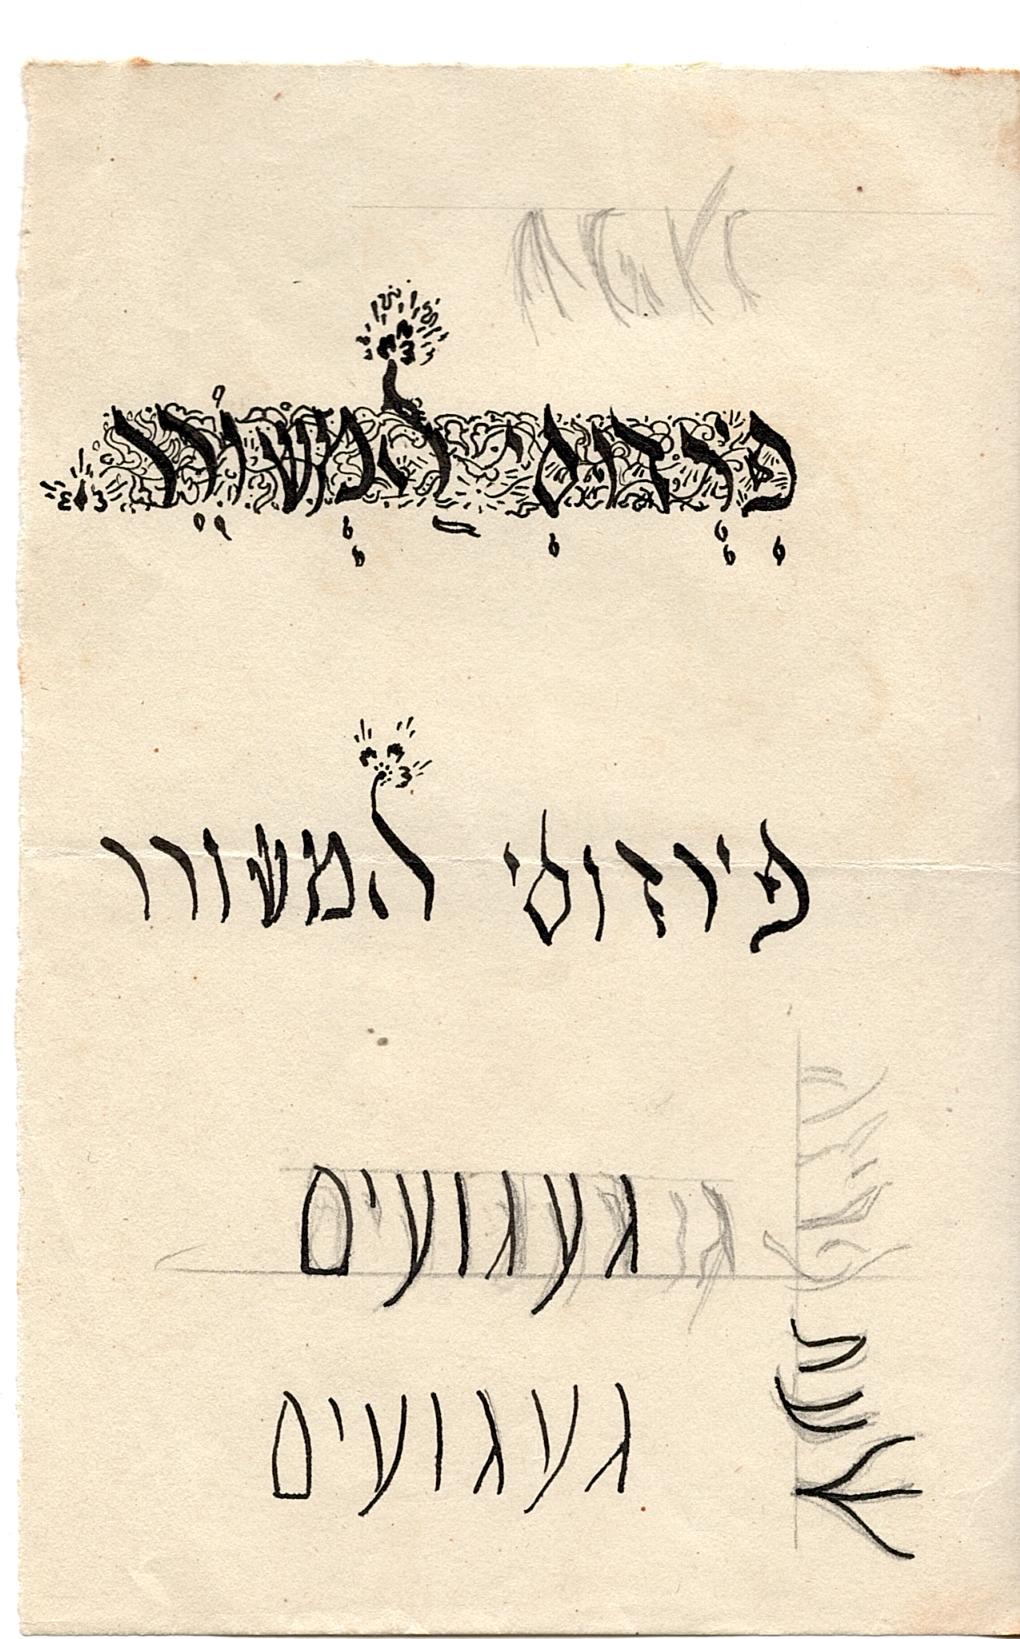 פִּירְדוּסִי הַמְשׁוֹרֵר
פירדוסי המשורר
געגועים
געגועים
שעת